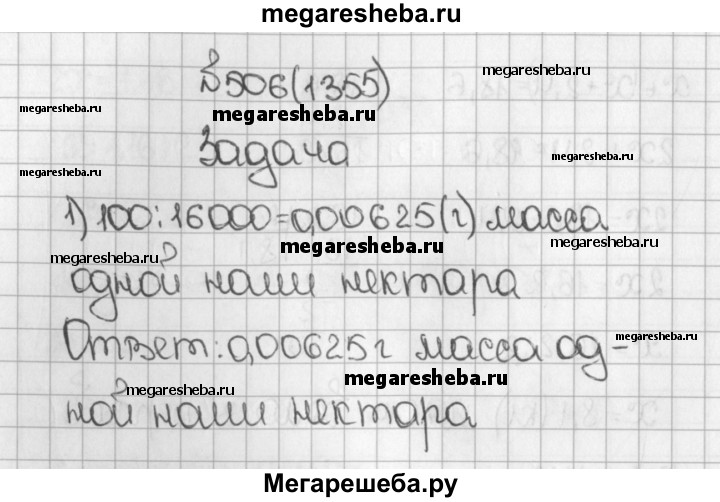 megaresheba.ru
№506(1355)
megaresheba.ru
megaresheba.ru
megaresheba.ru
Задача
megaresheba.ru
megaresheba.ru
1) 100:16000=0,00625(г) масса
megaresheba.ru
megaresheba.ru
megaresheba.ru
одной наши нектара
Ответ: 0,00625 г масса од-
megaresheba.ru
megaresheba.ru
megaresheba.ru
ной наши нектара
Мегарешеба.ру